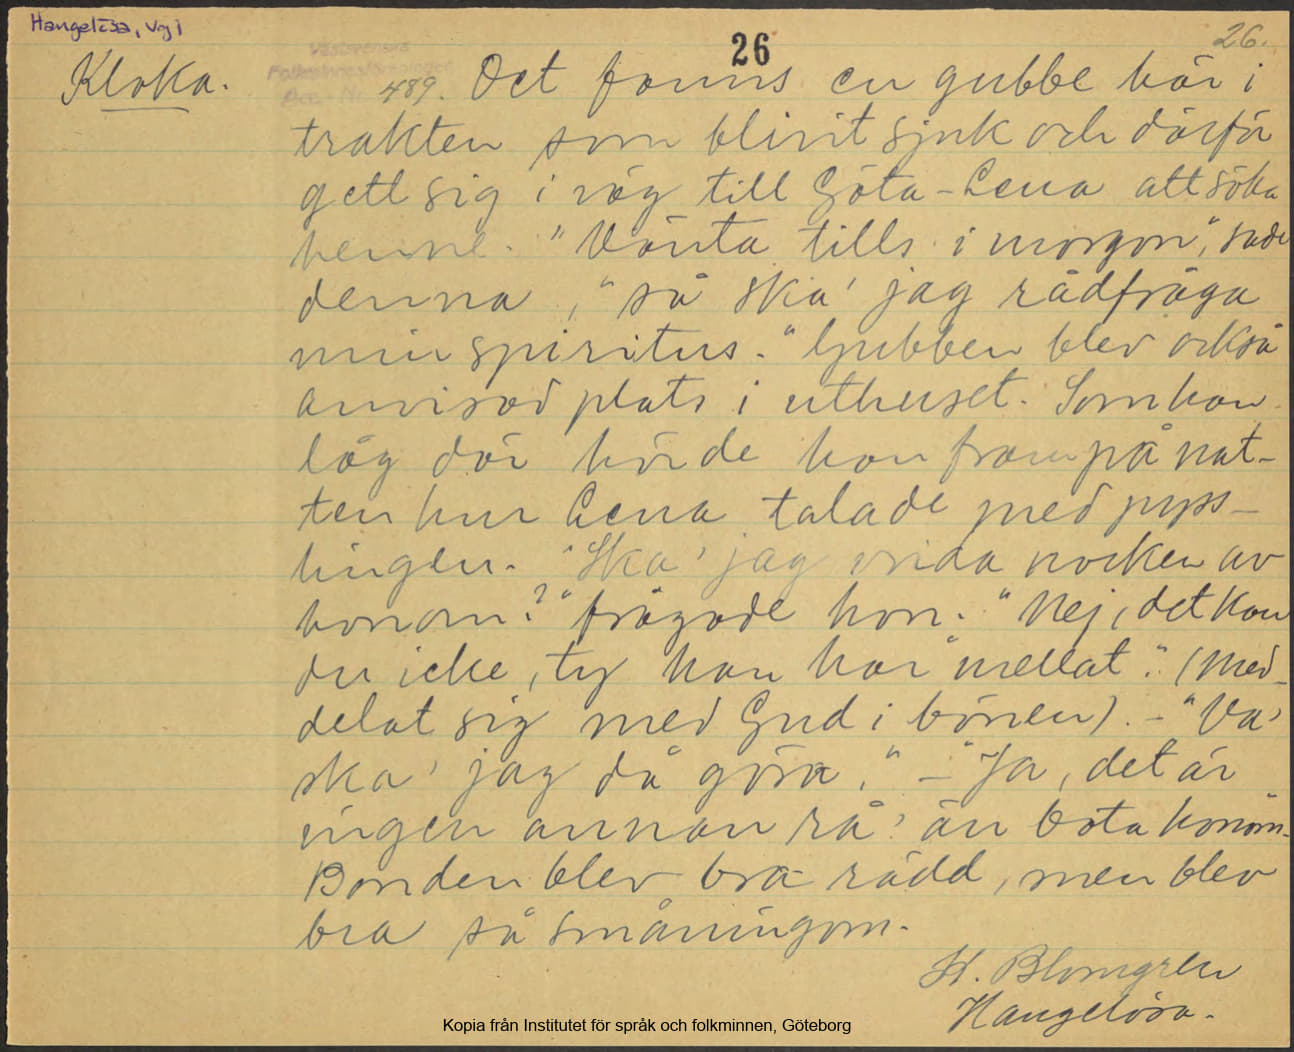 Hangelösa, Vgl
26
26.
Kloka.
Västsvenska
Folkminnesföreningen
Acc. Nr. 489. Det fanns en gubbe här i
trakten som blivit sjuk och därför
gett sig i väg till Göta-Lena att söka
henne. "Vänta tills i morgon", sade
denna, "så ska' jag rådfråga
min spiritus." Gubben blev också
anvisad plats i uthuset. Som han
låg där hörde han fram på nat-
ten hur Lena talade med pyss-
lingen. "Ska' jag vrida nocken av
honom?" frågade hon. "Nej, det kan
du icke, ty han har "mellat". (Med-
delat sig med Gud i bönen). - "Va'
ska' jag då göra," - "Ja, det är
ingen annan rå' än bota honom."
Bonden blev bra rädd, men blev
bra så småningom.
H. Blomgren
Hangelösa.
Kopia från Institutet för språk och folkminnen, Göteborg